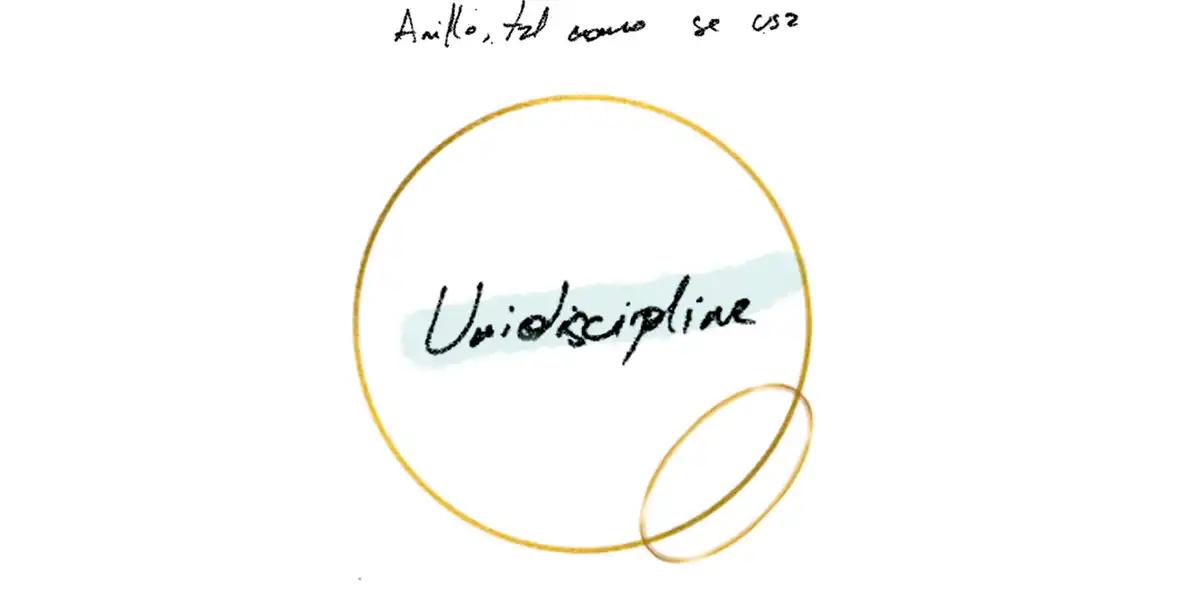 Anillo, tal como se usa
Unidiscipline